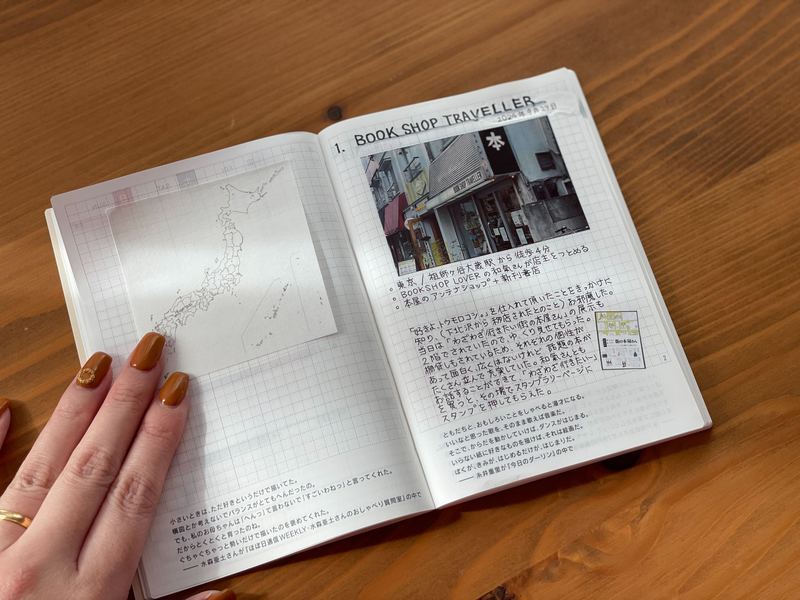 小さいときは、ただ好きというだけで描いてた。
構図とか考えないでバランスがとてもへんだったの。
でも、私のお母ちゃんは「へんっ」て言わないで「すごいわねっ」と言ってくれた。
だからとくとくと育ったのね。
ぐちゃぐちゃっと勢いだけで描いたのを褒めてくれた。
── 水森亜土さんが「ほぼ日通信WEEKLY・水森亜土さんのおしゃべり質問室」の中で
1. BOOK SHOP TRAVELLER
2024年9月27日
本
BOOK SHOP TRAVELLER
東京 / 祖師ヶ谷大蔵駅 から 徒歩4分
BOOKSHOP LOVER の 和氣さんが店主をつとめる
本屋の アンテナショップ + 新刊書店
『好きよ、トウモロコシ。』を仕入れて頂いたことをきっかけに
知り、(下北沢から 移店されたとのこと) お邪魔した。
当日は 「わざわざ行きたい街の本屋さん」の展示も
2階でされていたので、ゆっくり見せてもらった。
棚貸しもされているため、それぞれの個性が
あって面白く、広くはないけれど 話題の本が
たくさん並んで充実していた。和氣さんとも
お話することができて、「わざわざ行きたい〜」
を買うと、その場でスタンプラリーページに
スタンプを押してもらえた。
街の本屋さん
2
ともだちと、おもしろいことをしゃべると漫才になる。
いいなと思った歌を、そのまま歌えば音楽だ。
そこで、からだを動かしていけば、ダンスがはじまる。
いらない紙に好きなものを描けば、それは絵画だ。
ぼくが、きみが、はじめるだけが、はじまりだ。
── 糸井重里が「今日のダーリン」の中で